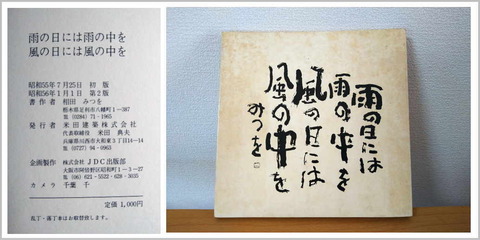 雨の日には雨の中を
風の日には風の中を
昭和55年7月25日 初版
昭和56年1月1日 第2版
書作者 相田 みつを
栃木県足利市八幡町1−387
電 (0284) 71−1965
発行者 米田建築株式会社
代表取締役 米田 典夫
兵庫県川西市大和東3丁目14−14
電 (0727) 94−0963
企画製作 株式会社JDC出版部
大阪市阿倍野区昭和町1−3−27
電 (06) 621−5522・628−3035
カメラ 千葉 千
定価 1,000円
乱丁・落丁本はお取替致します。
雨の日には
雨の中を
風の日には
風の中を
みつを